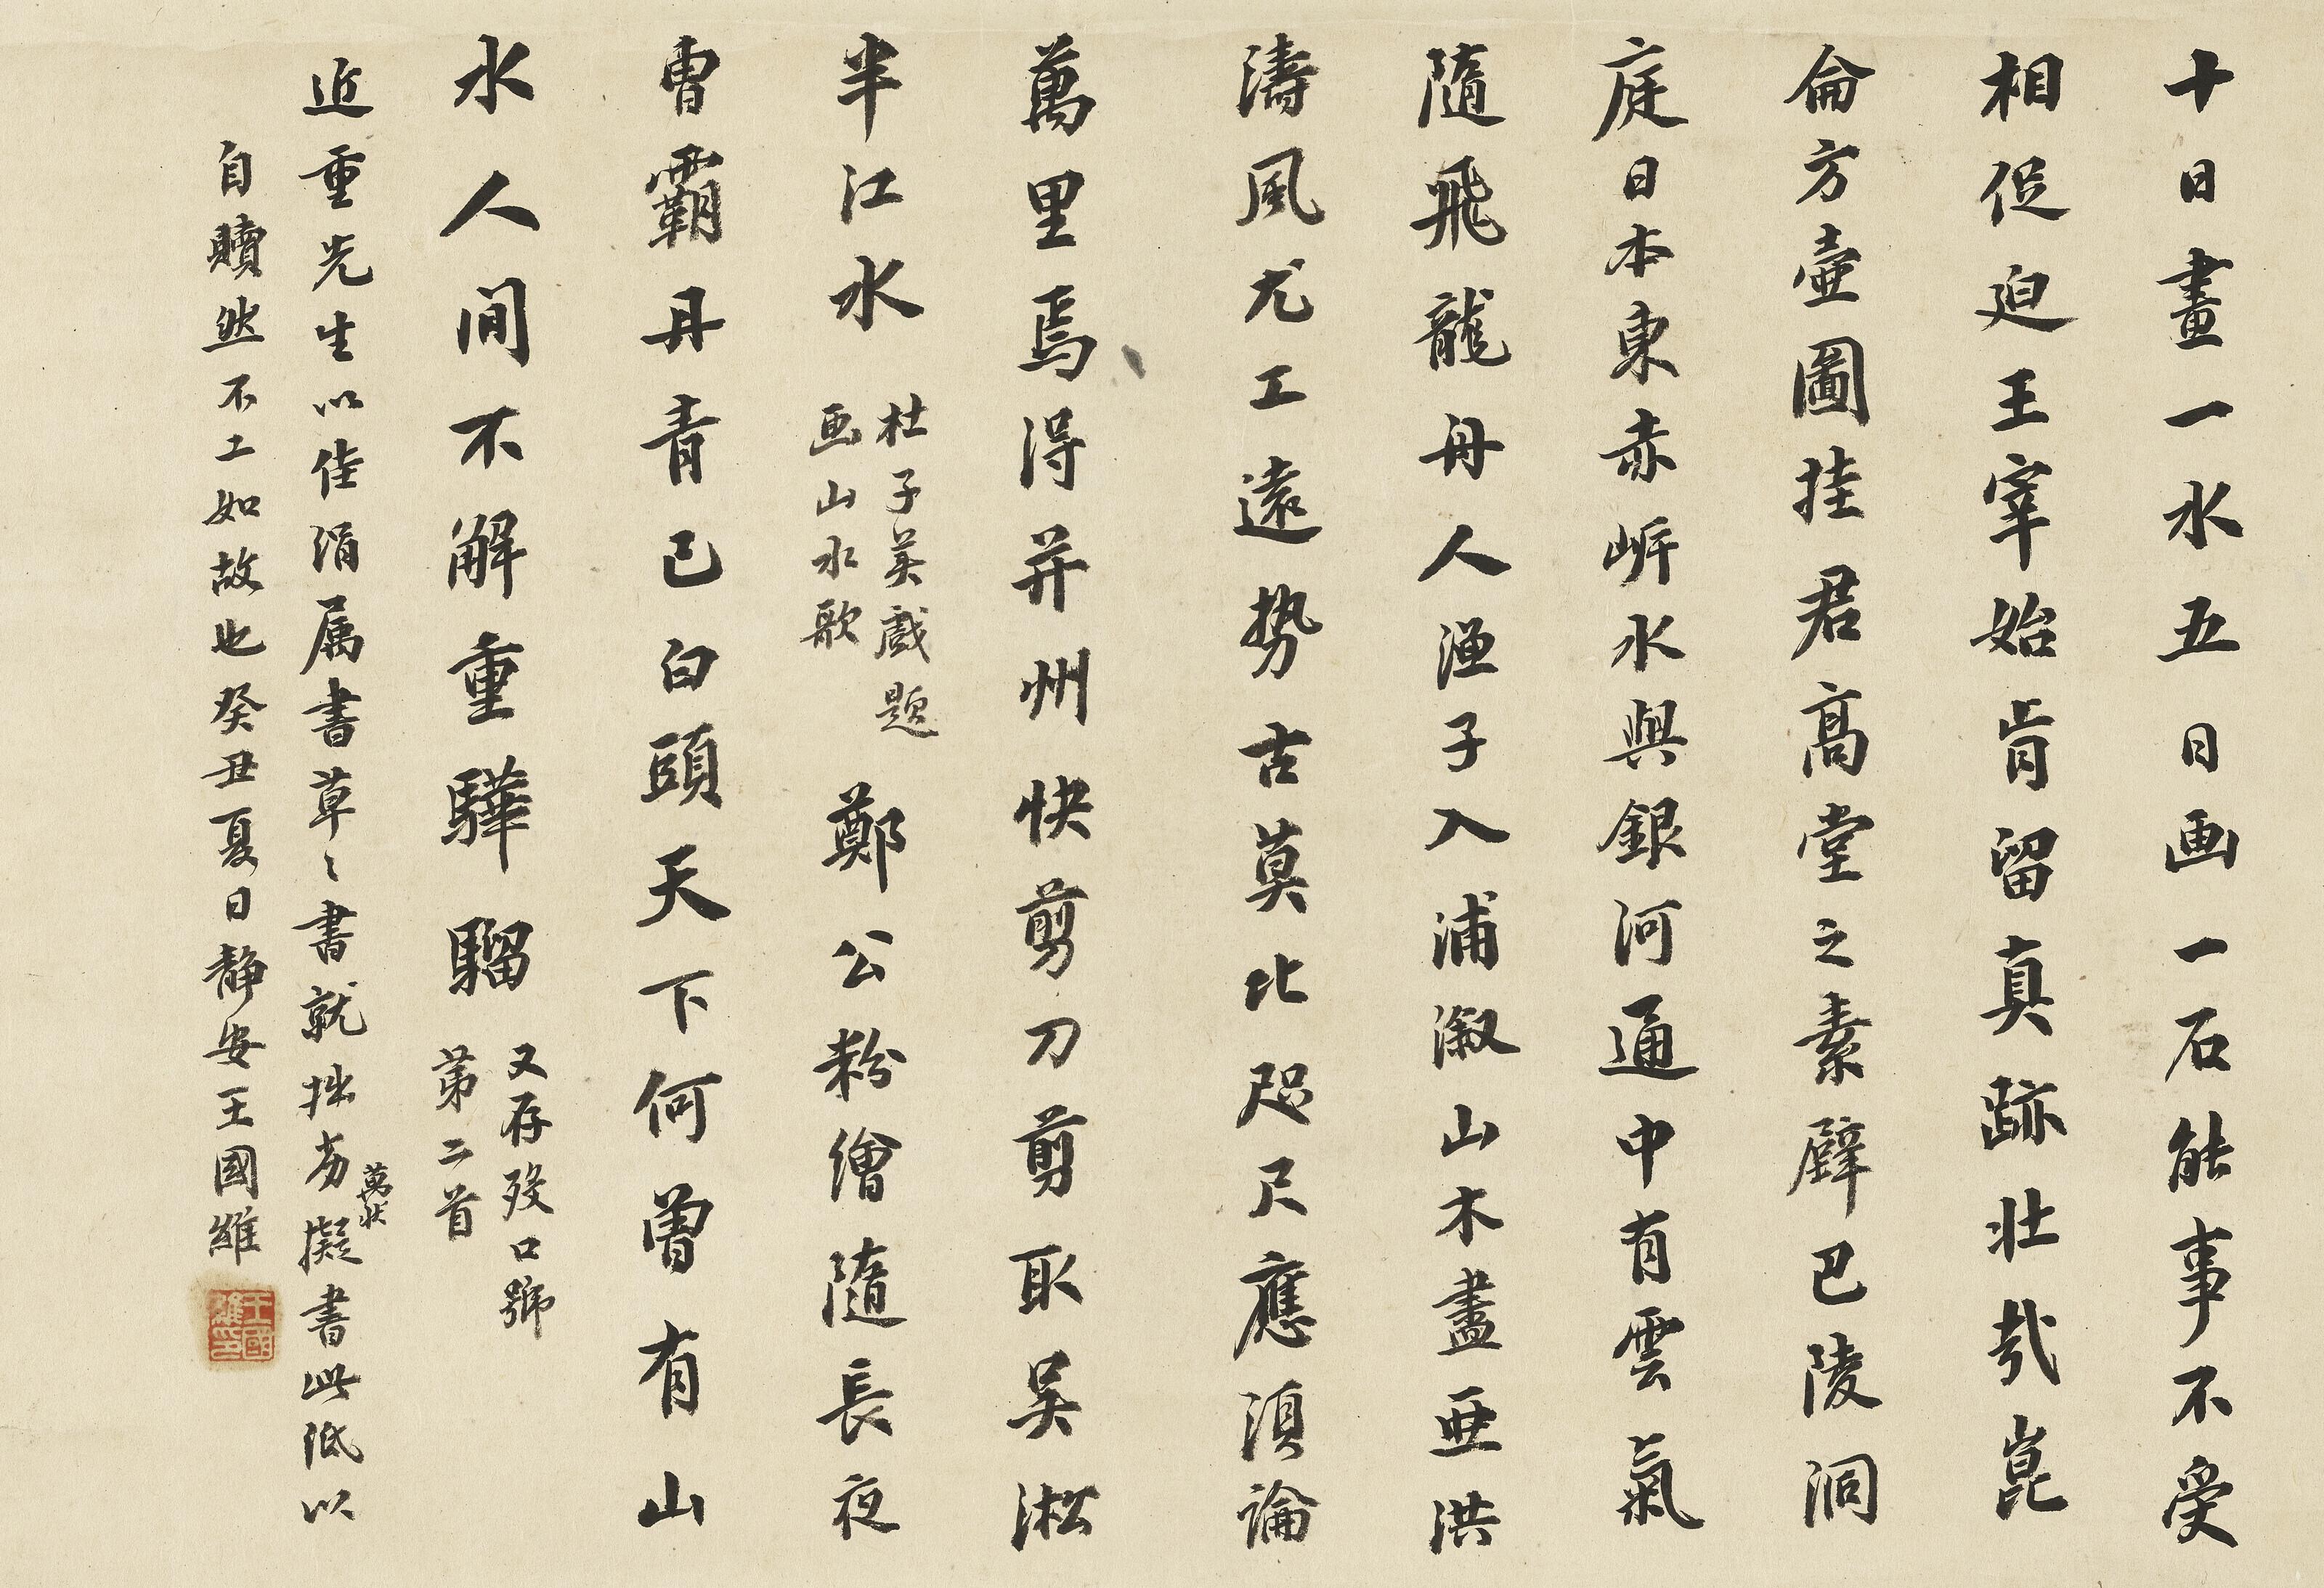 十日畫一水五日画一石能事不受
相促迫王宰始肯留真跡壯哉崑
侖方壺圖挂君髙堂之素壁巴陵洞
庭日本東赤岍水與銀河通中有雲氣
隨飛龍舟人漁子入浦溆山木盡亜洪
濤風尤工遠势古莫比咫尺應湏論
萬里焉得并州快剪刀剪取吴淞
半江水
杜子美戲題
画山水歌
鄭公粉繪隨長夜
曹霸丹青已白頭天下何曽有山
水人间不解重驊騮
又存殁口號
第二首
近重先生以佳絹属書草〻書就拙劣擬書此紙以
萬状
自贖然不工如故也癸丑夏日静安王國維
王國
維印